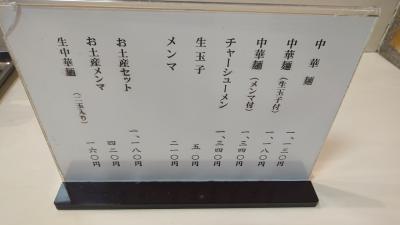 中華麺 一、一三〇円
中華麺（生玉子付） 一、一八〇円
中華麺（メンマ付） 一、三四〇円
チャーシューメン 一、三四〇円
生玉子 五〇円
メンマ 二一〇円
お土産セット 一、一八〇円
お土産メンマ 四二〇円
生中華麺（二玉入り） 一六〇円